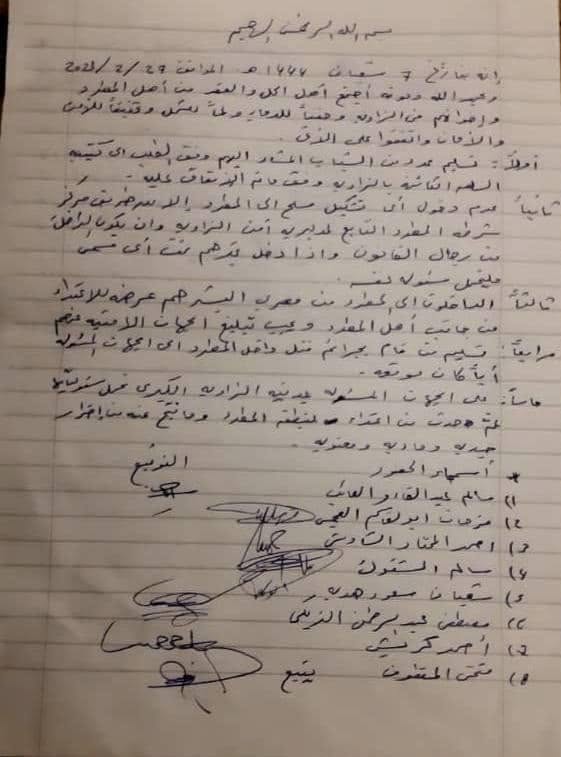 بسم الله الرحمن الرحيم
إنه بتاريخ 7 شعبان 1444هـ الموافق 27/2/2023
وبحمد الله وعونه أجتمع أهل الحل والعقد من أهل المطرد
وإخوانهم من الزاوية وحقناً للدماء ولماً للشمل وتحقيقاً للأمن
والأمان واتفقوا على الآتي
أولاً: تسليم عدد من الشباب المشار اليهم وفق الطلب الى كتيبة
السلعه الكائنة بالزاوية وفق ما تم الإتفاق عليه.
ثانياً عدم دخول أي تشكيل مسلح الى المطرد إلا عن طريق مركز
شرطة المطرد التابع لمديرية أمن الزاوية وان يكون الداخل
من رجال القانون واذا دخل غيرهم تحت أي مسمى
فليتحمل مسئولية نفسه.
ثالثاً: الداخلون الى المطرد من مهربي البشر هم عرضة للاعتداء
من جانب أهل المطرد ويجب تبليغ الجهات الأمنية عنهم
رابعاً: تسليم من قام بجرائم قتل داخل المطرد الى الجهات المسئولة
أياً كان موقعه.
خامساً: على الجهات المسئولة بمدينة الزاوية الكبرى تحمل مسئولياتها
عما حدث من اعتداء لمنطقة المطرد وما نتج عنه من اضرار
جسدية ومادية ومعنوية.
* أسماء الحضور التوقيع
1) سالم عبدالقادر
2) فرحات ابوالقاسم
3) احمد المختار
4) سالم
5) شعبان مسعود
6) مصطفى عبدالرحمن
7) أحمد
8) فتحي يتبع